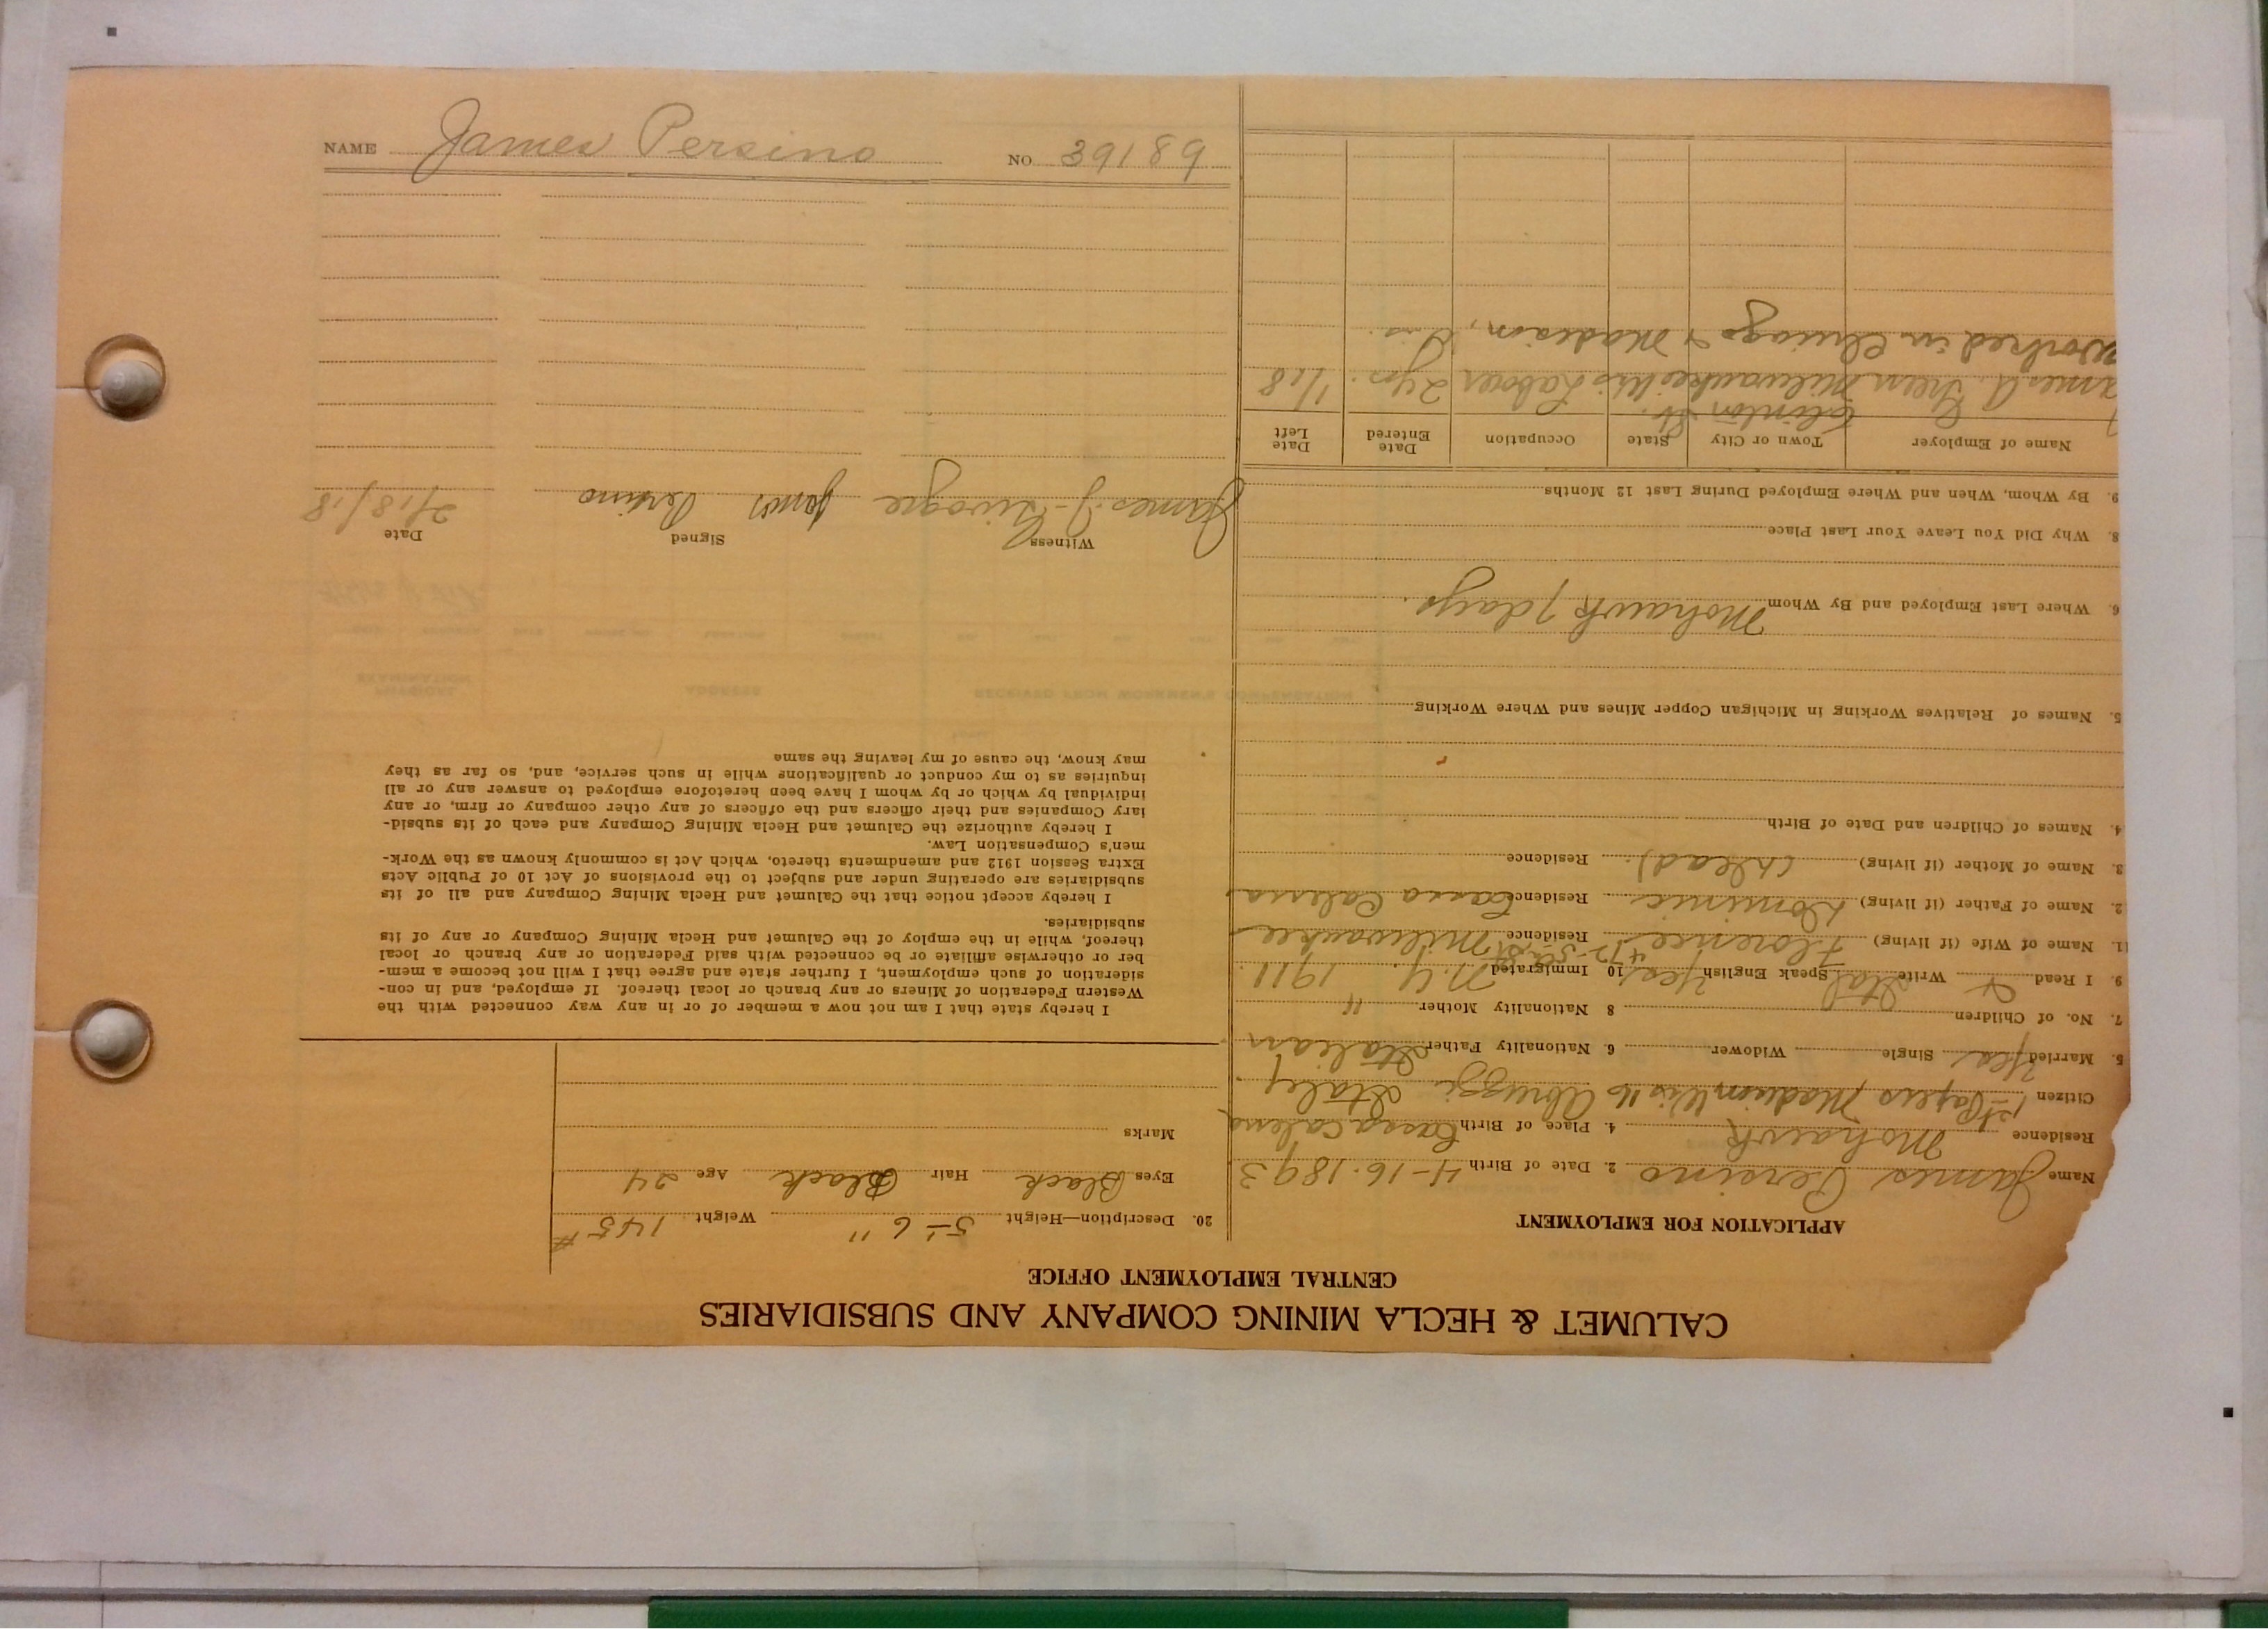 CALUMET & HECLA MINING COMPANY AND SUBSIDIARIES
CENTRAL EMPLOYMENT OFFICE
APPLICATION FOR EMPLOYMENT
Name James Persino 2. Date of Birth 4-16-1893
Residence Mohawk 4. Place of Birth Casa Calena
Citizen 1st Papers Madison Wis 16 Abruzzi Italy
5. Married Yes Single Widower 6. Nationality Father Italian
7. No. of Children 8 Nationality Mother "
9. I Read & Write Ital Speak English Yes 10 Immigrated N.Y. 1911.
11. Name of Wife (if living) Florence Residence 472-5th St Milwaukee
2. Name of Father (if living) Dominic Residence Casa Calena
3. Name of Mother (if living) (Dead) Residence
4. Names of Children and Date of Birth
5. Names of Relatives Working in Michigan Copper Mines and Where Working
6. Where Last Employed and By Whom Mohawk 7 days.
8. Why Did You Leave Your Last Place
9. By Whom, When and Where Employed During Last 12 Months
Name of Employer Town or City State Occupation Date Entered Date Left
Clinton St.
James A. Milwaukee Wis Laborer 2 yrs. 1/18
Worked in Chicago & Madison,
20. Description—Height 5-6" Weight 145#
Eyes Black Hair Black Age 24
Marks
I hereby state that I am not now a member of or in any way connected with the
Western Federation of Miners or any branch or local thereof. If employed, and in con-
sideration of such employment, I further state and agree that I will not become a mem-
ber or otherwise affiliate or be connected with said Federation or any branch or local
thereof, while in the employ of the Calumet and Hecla Mining Company or any of its
subsidiaries.
I hereby accept notice that the Calumet and Hecla Mining Company and all of its
subsidiaries are operating under and subject to the provisions of Act 10 of Public Acts
Extra Session 1912 and amendments thereto, which Act is commonly known as the Work-
men's Compensation Law.
I hereby authorize the Calumet and Hecla Mining Company and each of its subsid-
iary Companies and their officers and the officers of any other company or firm, or any
individual by which or by whom I have been heretofore employed to answer any or all
inquiries as to my conduct or qualifications while in such service, and, so far as they
may know, the cause of my leaving the same
Witness Signed Date
James J. James Persino 2/18/18
NAME James Persino NO. 39189